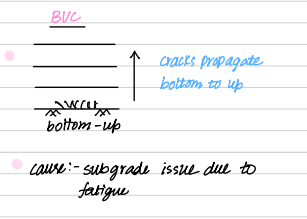 BUC
cracks propagate
bottom to up
bottom-up
cause:- subgrade issue due to
fatigue